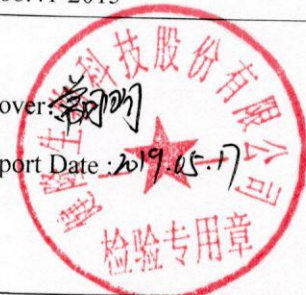 over:
port Date :2019.05.17
健隆生物科技股份有限公司
检验专用章